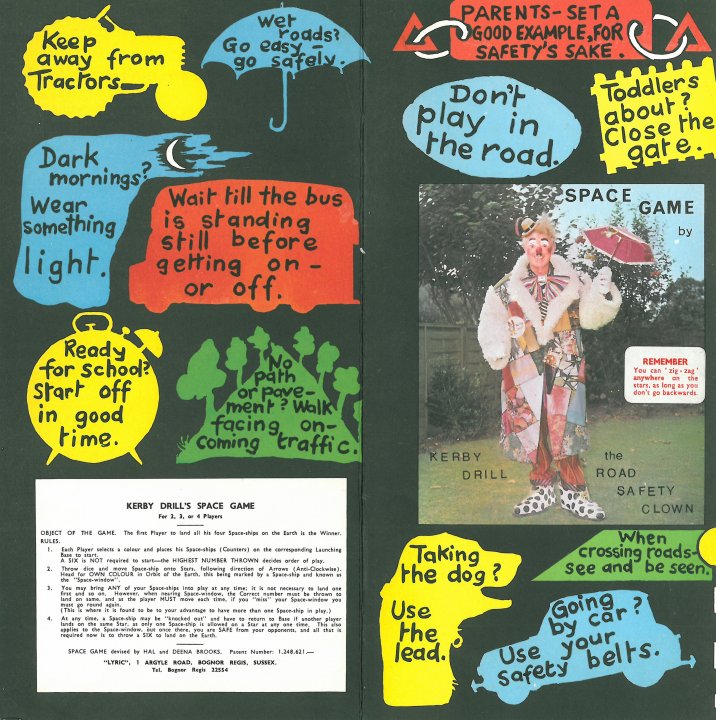 Keep
away from
Tractors
Wet
roads?
Go easy –
go safely.
Dark
mornings?
Wear
something
light.
Wait till the bus
is standing
still before
getting on –
or off.
Ready
for school?
Start off
in good
time.
No
path
or pave-
ment? Walk
facing on-
coming traffic.
KERBY DRILL'S SPACE GAME
For 2, 3, or 4 Players
OBJECT OF THE GAME. The first Player to land all his four Space-ships on the Earth is the Winner.
RULES.
1. Each Player selects a colour and places his Space-ships (Counters) on the corresponding Launching
Base to start.
A SIX is NOT required to start—the HIGHEST NUMBER THROWN decides order of play.
2. Throw dice and move Space-ship onto Stars, following direction of Arrows (Anti-Clockwise).
Head for OWN COLOUR in Orbit of the Earth, this being marked by a Space-ship and known as
the "Space-window".
3. You may bring ANY of your Space-ships into play at any time; it is not necessary to land one
first and so on. However, when nearing Space-window, the Correct number must be thrown to
land on same, and as the player MUST move each time, if you "miss" your Space-window you
must go round again.
(This is where it is found to be to your advantage to have more than one Space-ship in play.)
4. At any time, a Space-ship may be "knocked out" and have to return to Base if another player
lands on the same Star, as only one Space-ship is allowed on a Star at any one time. This also
applies to the Space-window, but once there, you are SAFE from your opponents, and all that is
required now is to throw a SIX to land on the Earth.
SPACE GAME devised by HAL and DEENA BROOKS. Patent Number: 1,248,621.—
"LYRIC", 1 ARGYLE ROAD, BOGNOR REGIS, SUSSEX.
Tel. Bognor Regis 22554
PARENTS – SET A
GOOD EXAMPLE, FOR
SAFETY'S SAKE.
Don't
play in
the road.
Toddlers
about?
Close the
gate.
SPACE
GAME
by
REMEMBER
You can 'zig-zag'
anywhere on the
stars, as long as you
don't go backwards.
KERBY
DRILL
the
ROAD
SAFETY
CLOWN
Taking
the dog?
Use
the
lead.
When
crossing roads –
see and be seen.
Going
by car?
Use your
safety belts.